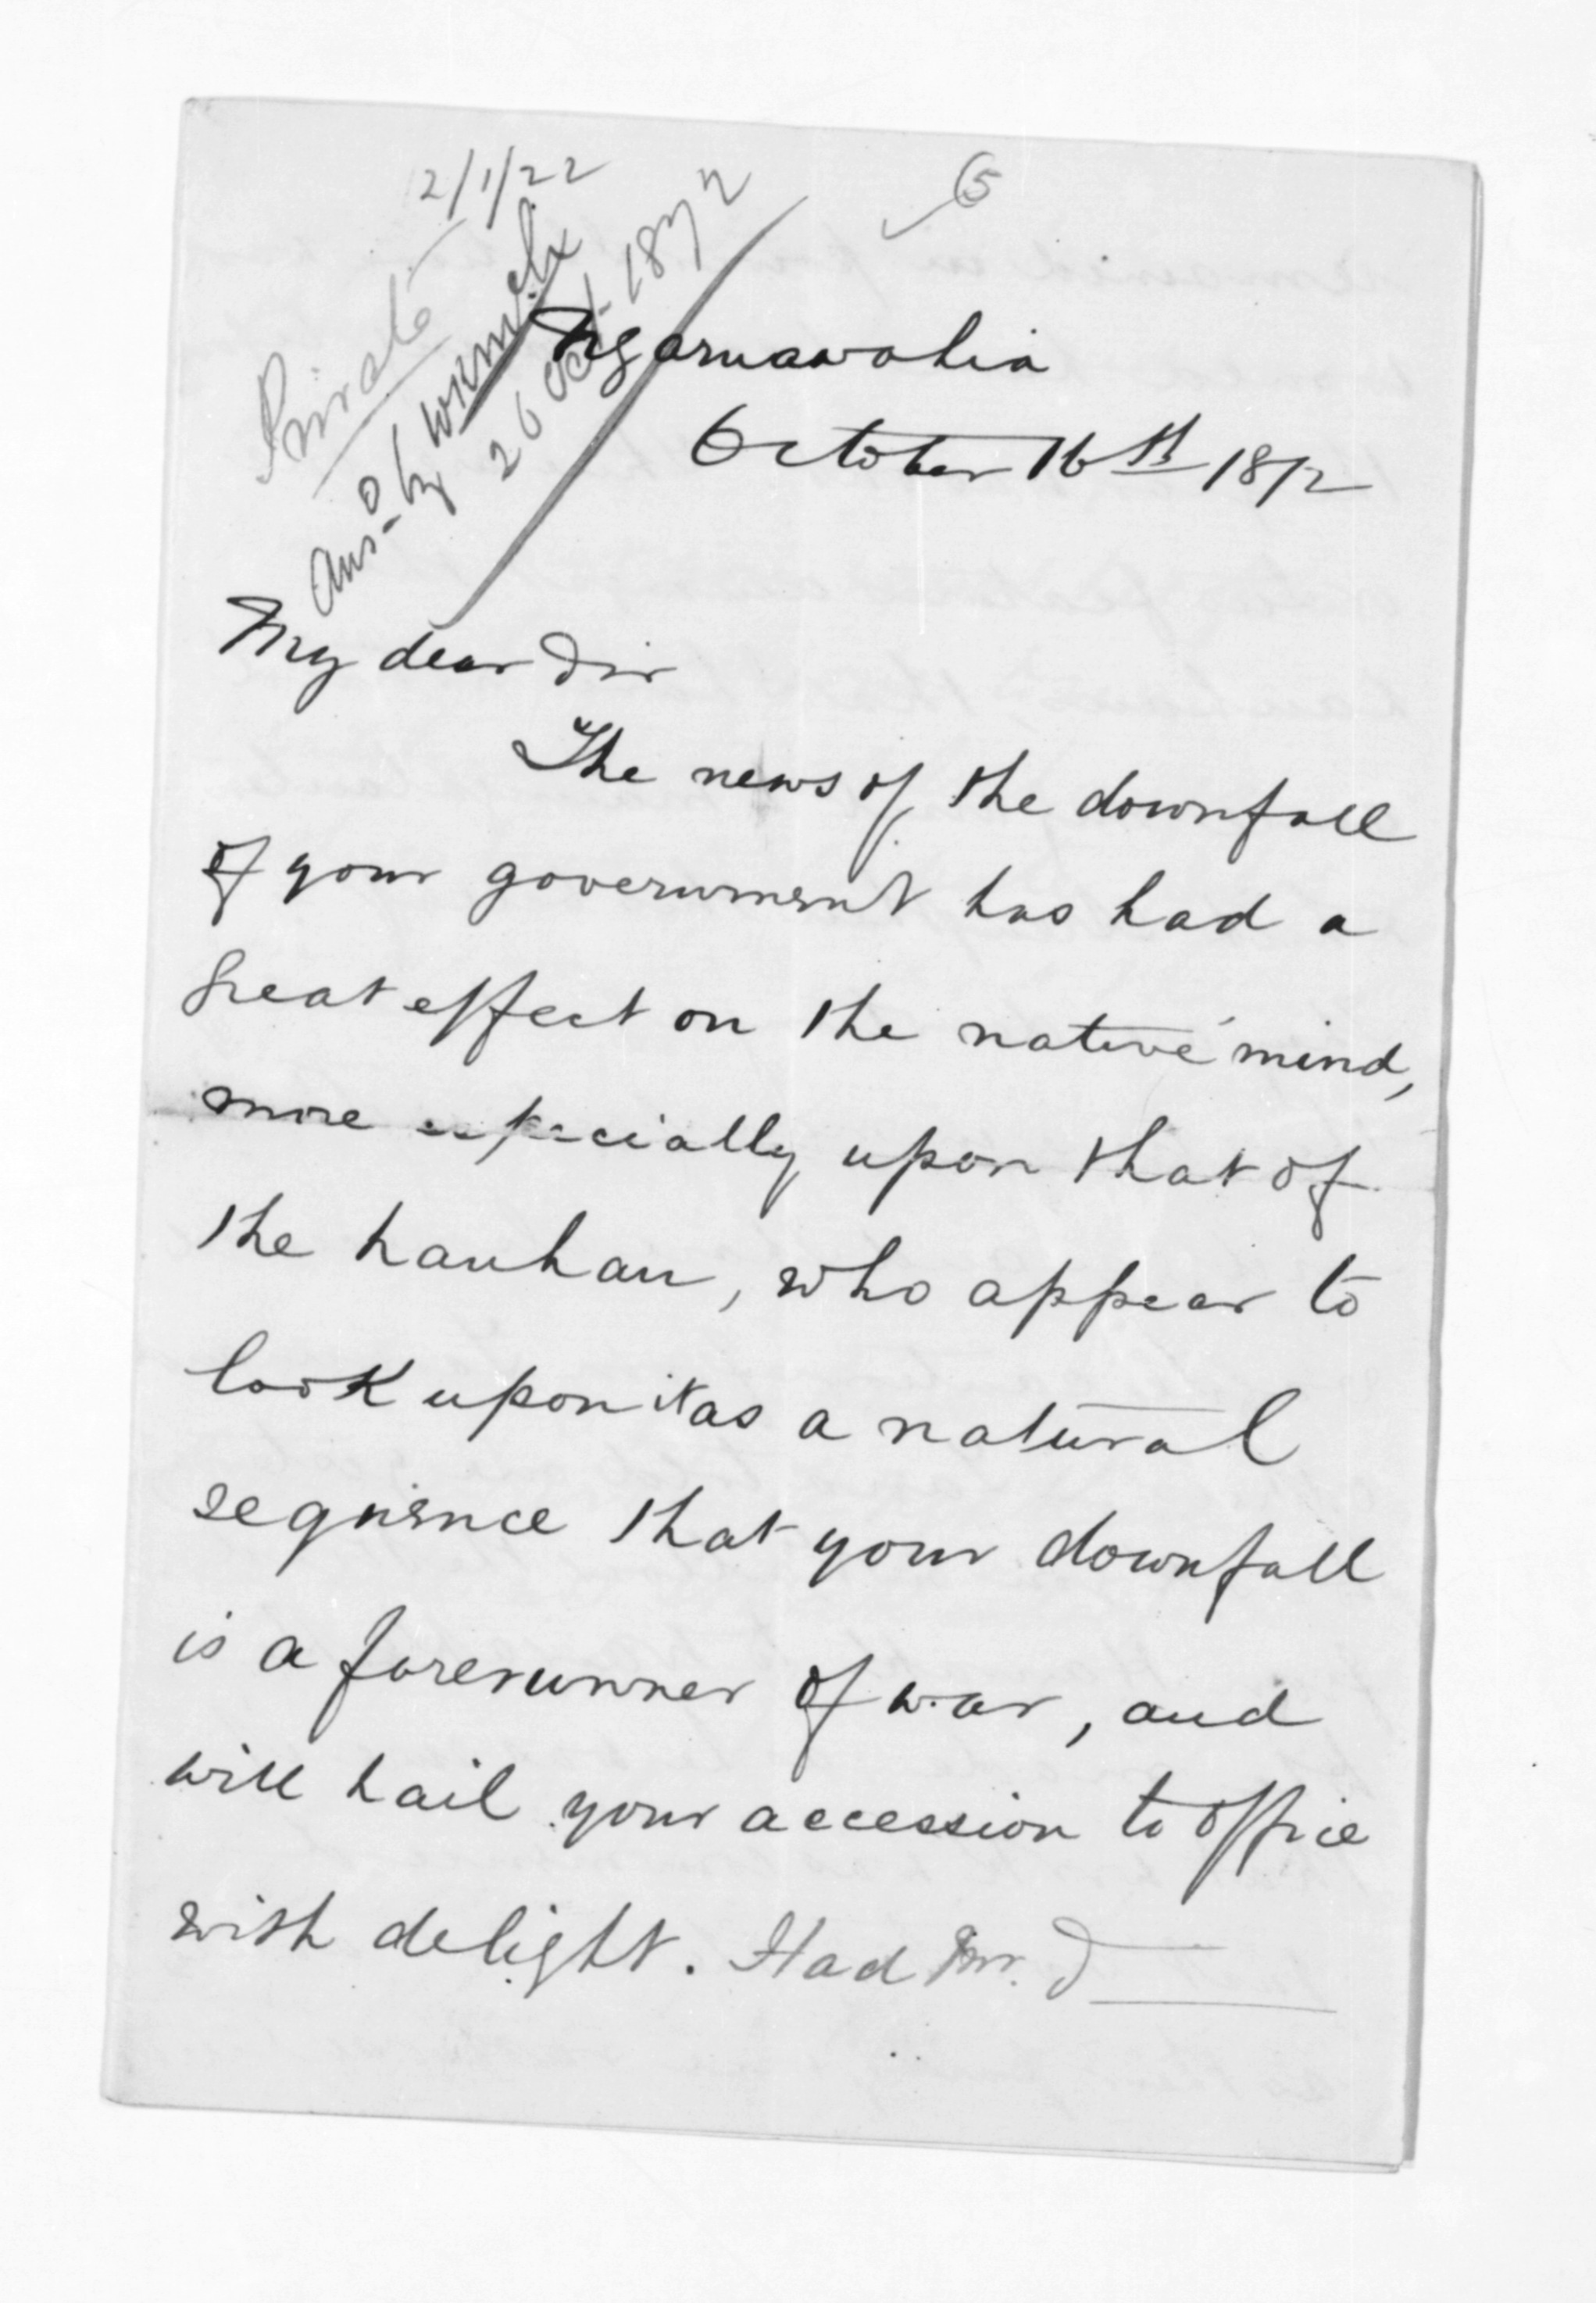 2/1/22
5
Private
Ans. by
26 Oct. 1872
Ngaruawahia
October 16th 1872
My dear Sir
The news of the downfall
of your government has had a
great effect on the native mind,
more especially upon that of
the hauhau, who appear to
look upon it as a natural
sequence that your downfall
is a forerunner of war, and
will hail your accession to office
with delight. Had Mr. S